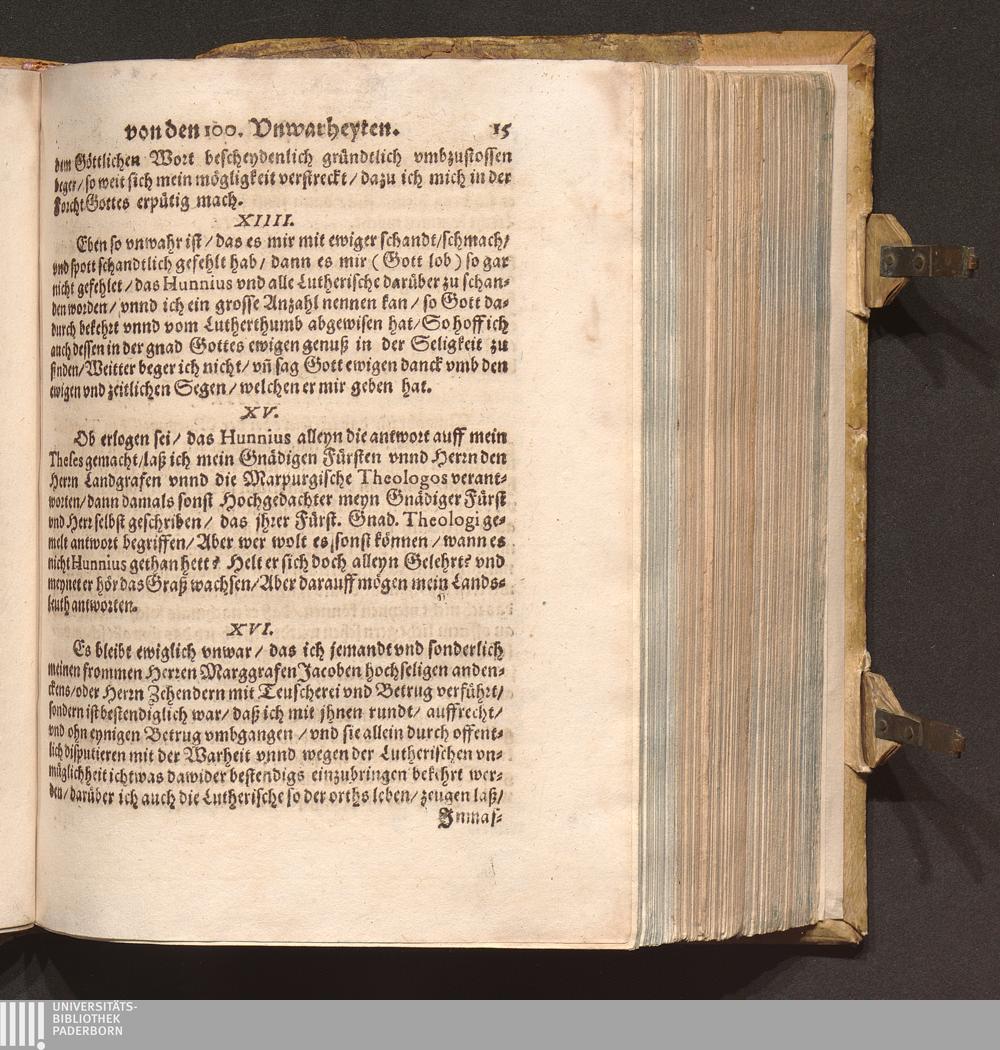 von den 100. Vnwarheyten. 15
dem Göttlichen Wort bescheydenlich gründtlich vmbzustossen
beger/ so weit sich mein mögligkeit verstreckt/ dazu ich mich in der
Forcht Gottes erpütig mach.
XIIII.
Eben so vnwahr ist/ das es mir mit ewiger schandt/schmach/
vnd spott schandtlich gefehlt hab/ dann es mir (Gott lob) so gar
nicht gefehlet/ das Hunnius vnd alle Lutherische darüber zu schan-
den worden/ vnnd ich ein grosse Anzahl nennen kan/ so Gott da-
durch bekehrt vnnd vom Lutherthumb abgewisen hat/ So hoff ich
auch dessen in der gnad Gottes ewigen genuß in der Seligkeit zu
finden/Weitter beger ich nicht/ vñ sag Gott ewigen danck vmb den
ewigen vnd zeitlichen Segen/ welchen er mir geben hat.
XV.
Ob erlogen sei/ das Hunnius alleyn die antwort auff mein
Theses gemacht/laß ich mein Gnädigen Fürsten vnnd Herrn den
Herrn Landgrafen vnnd die Marpurgische Theologos verant-
worten/ dann damals sonst Hochgedachter meyn Gnädiger Fürst
vnd Herr selbst geschriben/ das jhrer Fürst. Gnad. Theologi ge-
melt antwort begriffen/ Aber wer wolt es sonst können/ wann es
nicht Hunnius gethan hett? Helt er sich doch alleyn Gelehrt? vnd
meynet er hör das Graß wachsen/ Aber darauff mögen mein Lands-
leuth antworten.
XVI.
Es bleibt ewiglich vnwar/ das ich jemandt vnd sonderlich
meinen frommen Herren Marggrafen Jacoben hochseligen anden-
ckens/oder Herrn Zehendern mit Teuscherei vnd Betrug verführt/
sondern ist bestendiglich war/ daß ich mit jhnen rundt/ auffrecht/
vnd ohn eynigen Betrug vmbgangen/ vnd sie allein durch offent-
lich disputieren mit der Warheit vnnd wegen der Lutherischen vn-
müglichheit ichtwas dawider bestendigs einzubringen bekehrt wer-
den/ darüber ich auch die Lutherische so der orths leben/ zeugen laß/
Inmas-
UNIVERSITÄTS-
BIBLIOTHEK
PADERBORN